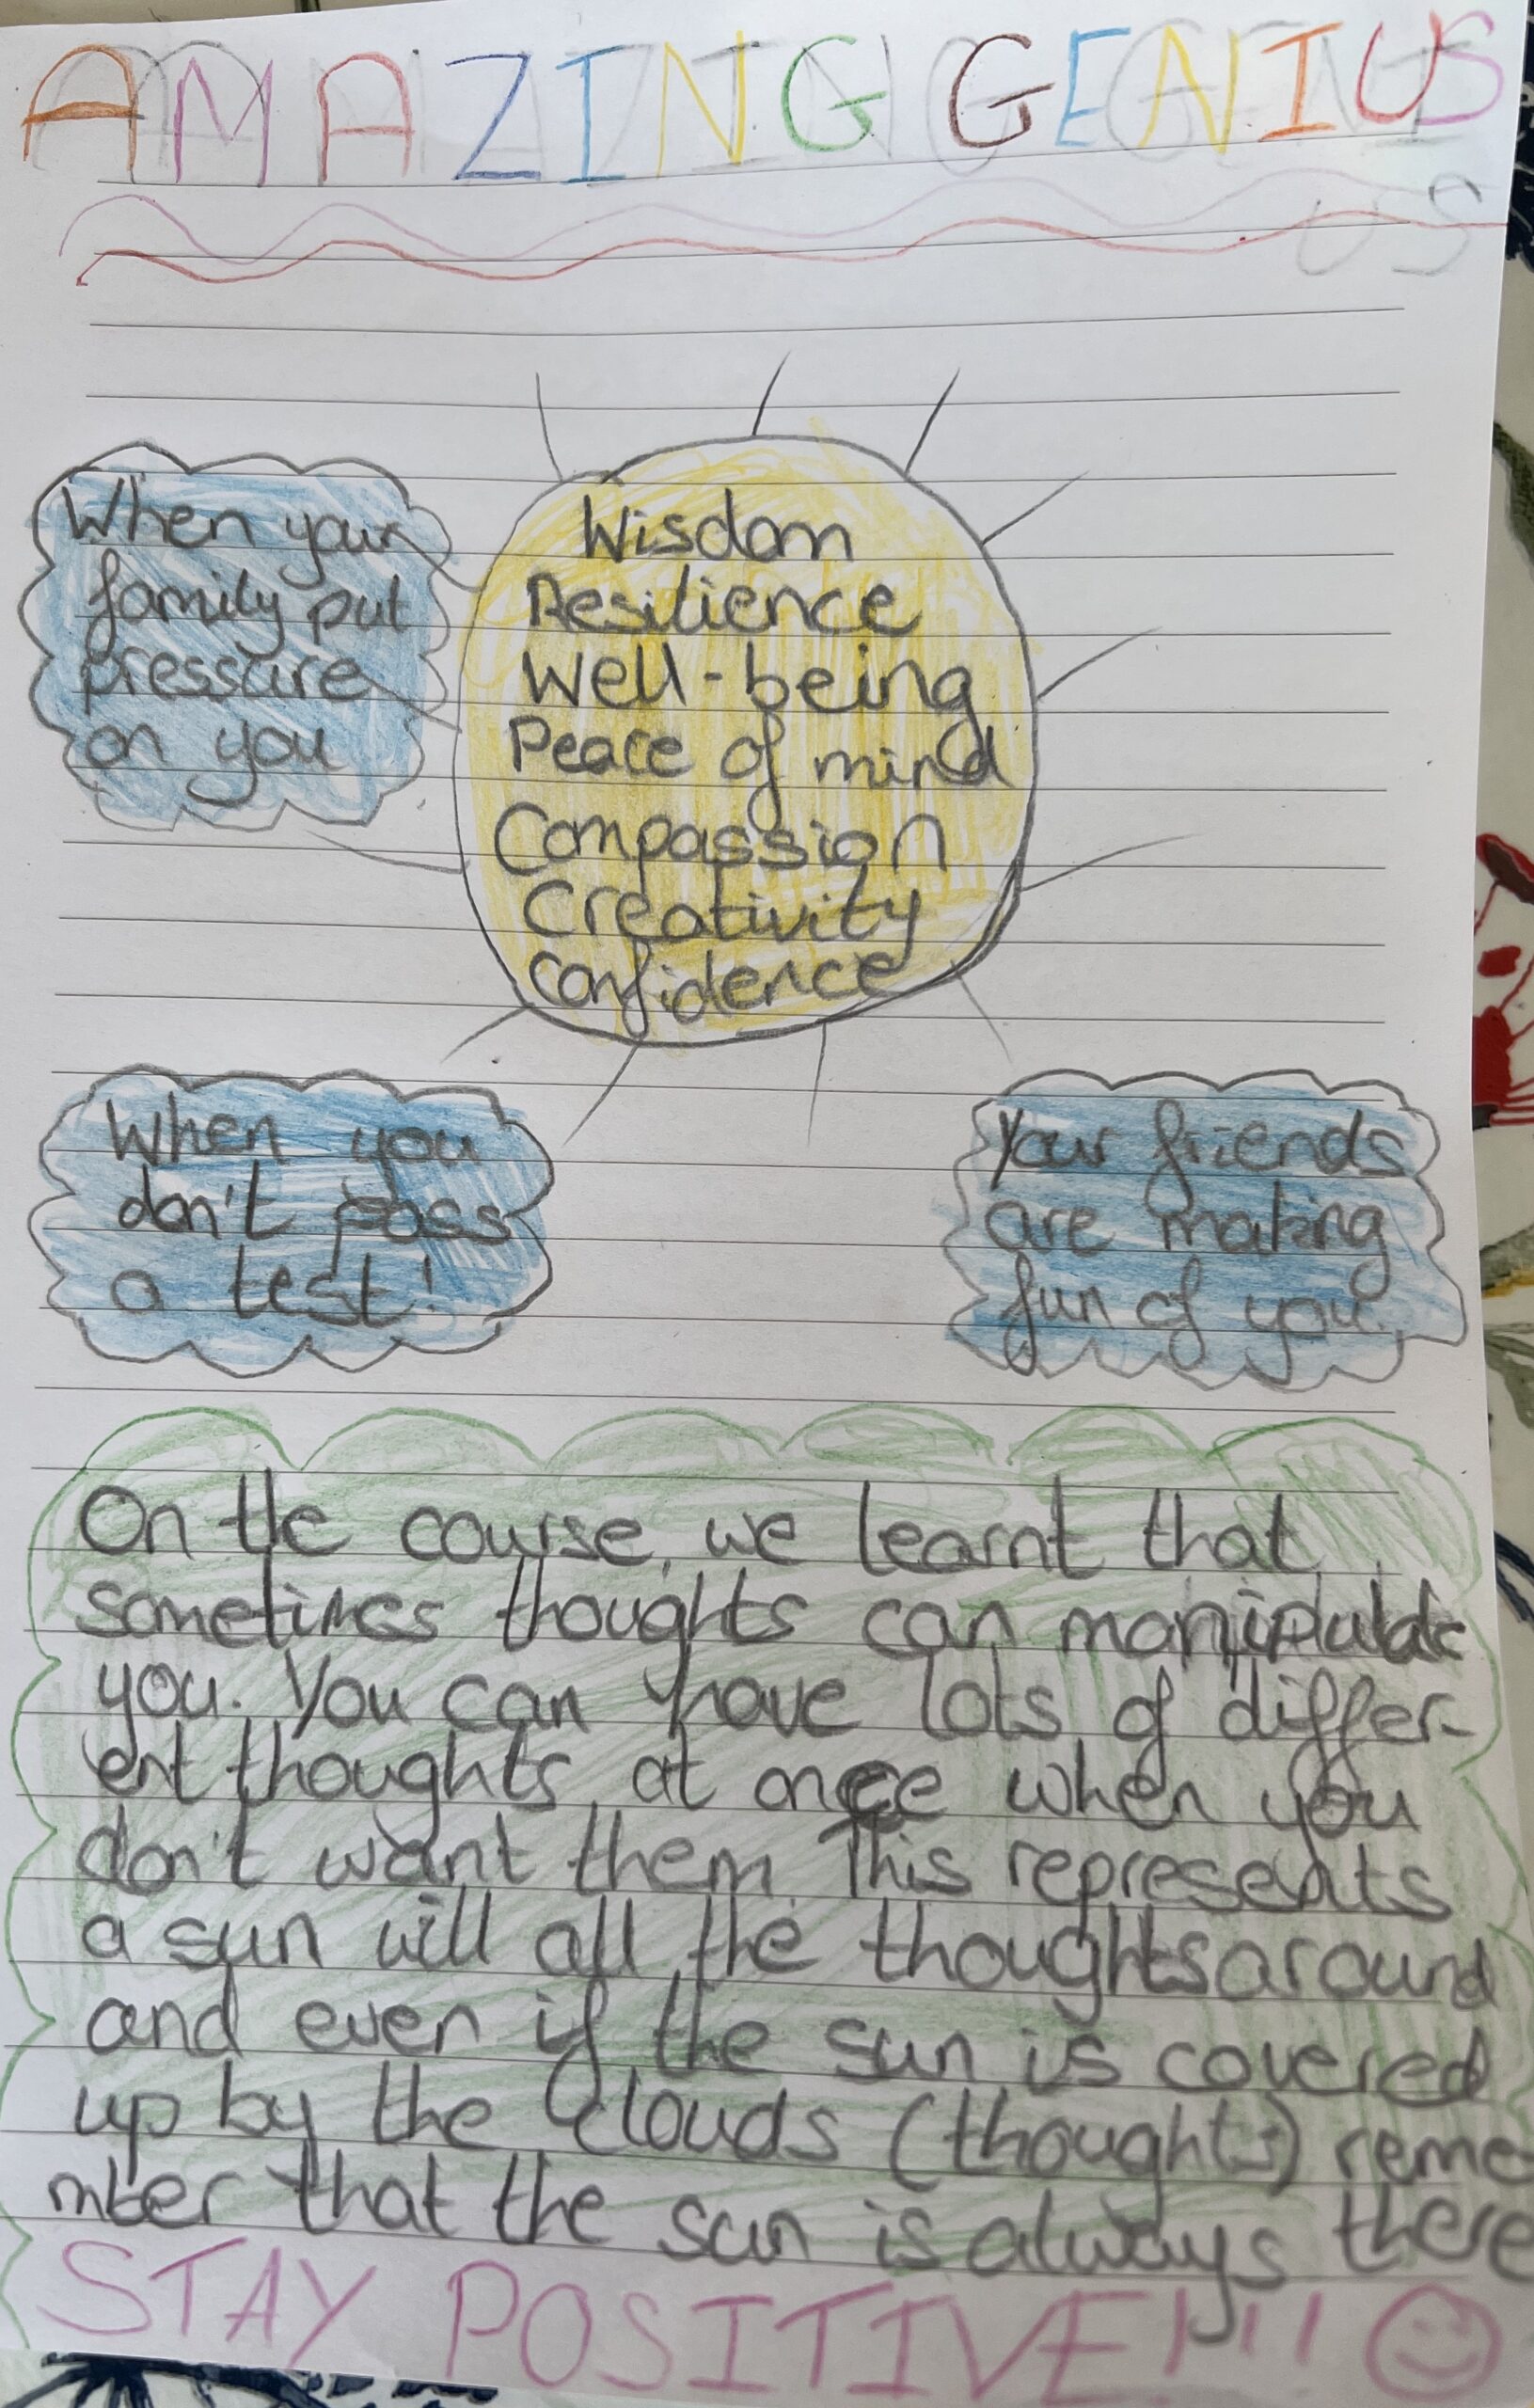 AMAZING GENIUS
US
When your
family put
pressure
on you
Wisdom
Resilience
Well-being
Peace of mind
Compassion
Creativity
confidence
When you
don't pass
a test!
Your friends
are making
fun of you.
On the course, we learnt that
sometimes thoughts can manipulate
you. You can have lots of differ-
ent thoughts at once when you
don't want them. This represents
a sun will all the thoughts around
and even if the sun is covered
up by the clouds (thoughts) reme
mber that the sun is always there
STAY POSITIVE!!!